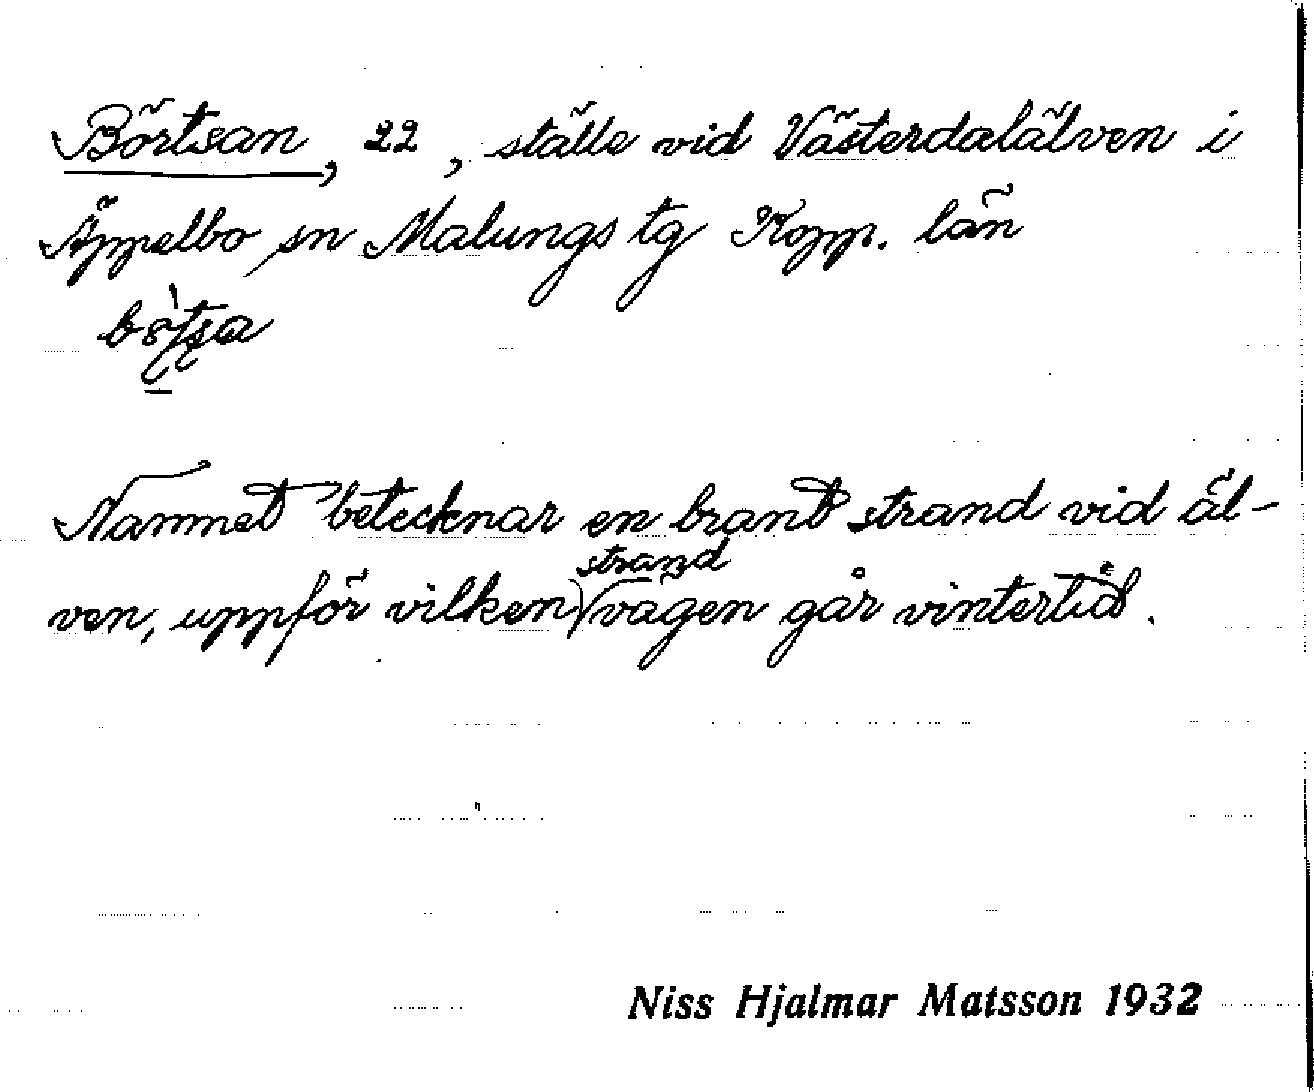 Börtsan, 22, ställe vid Västerdalälven i
Äppelbo sn Malungs tg Kopp. län
Namnet betecknar en brant strand vid äl-
ven, uppför vilken strandvägen går vintertid.
Niss Hjalmar Matsson 1932